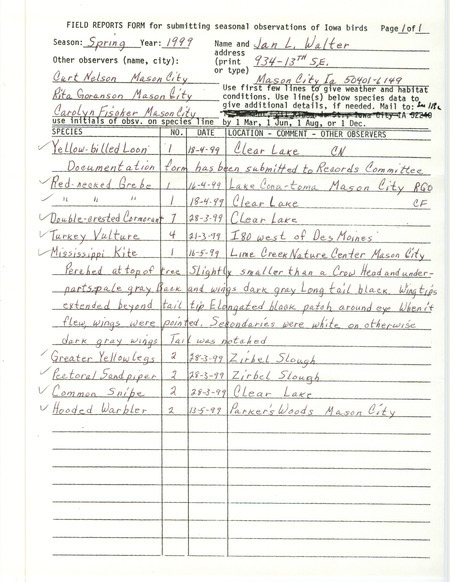 FIELD REPORTS FORM for submitting seasonal observations of Iowa birds Page 1 of 1
Season: Spring Year: 1999 Name and address (print or type) Jan L. Walter
934-13TH S.E.
Mason City Ia 50401-6149
Other observers (name, city):
Curt Nelson Mason City
Rita Goranson Mason City
Carolyn Fischer Mason City
use initials of obsv. on species line
Use first few lines to give weather and habitat
conditions. Use line(s) below species data to
give additional details, if needed. Mail to:
by 1 Mar, 1 Jun, 1 Aug, or 1 Dec.
SPECIES NO. DATE LOCATION - COMMENT - OTHER OBSERVERS
✓ Yellow-billed Loon 1 18-4-99 Clear Lake CN
Documentation form has been submitted to Records Committee
✓ Red-necked Grebe 1 16-4-99 Lake Cona-toma Mason City RGO
✓ " " " 1 18-4-99 Clear Lake CF
✓ Double-crested Cormorant 7 28-3-99 Clear Lake
✓ Turkey Vulture 4 21-3-99 I80 west of Des Moines
✓ Mississippi Kite 1 16-5-99 Lime Creek Nature Center Mason City
Perched at top of tree Slightly smaller than a Crow Head and under-
parts pale gray Back and wings dark gray Long tail black. Wing tips
extended beyond tail tip Elongated black patch around eye When it
flew, wings were pointed. Secondaries were white on otherwise
dark gray wings Tail was notched
✓ Greater Yellowlegs 2 28-3-99 Zirbel Slough
✓ Pectoral Sandpiper 2 28-3-99 Zirbel Slough
✓ Common Snipe 2 28-3-99 Clear Lake
✓ Hooded Warbler 2 13-5-99 Parker's Woods Mason City